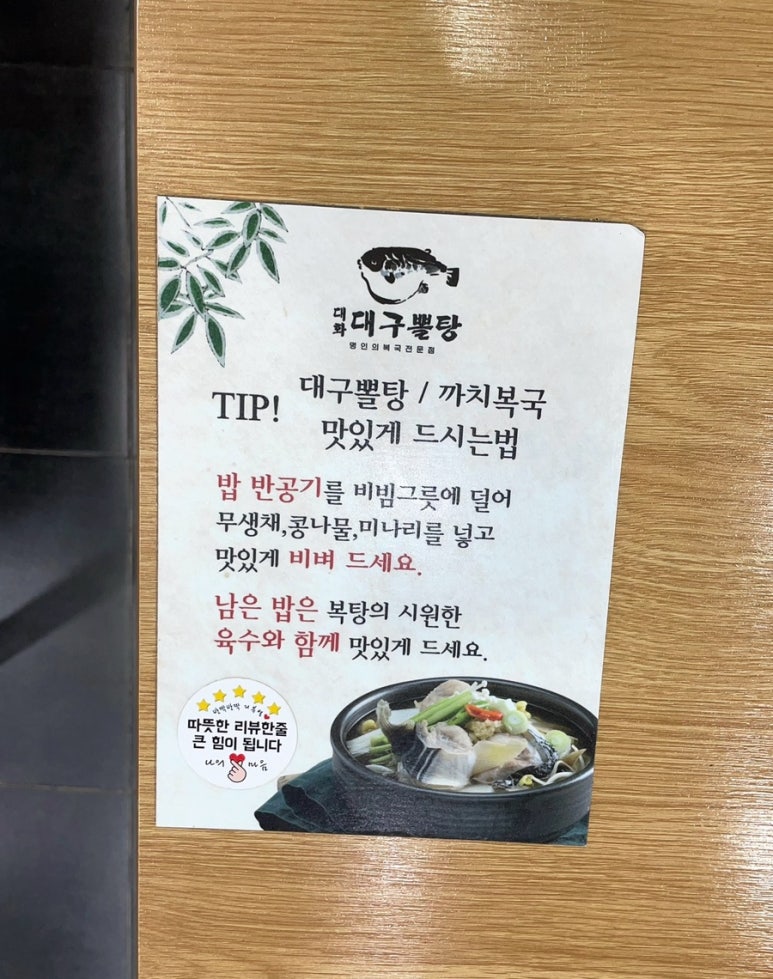 대화 대구뽈탕
명인의복국전문점
TIP! 대구뽈탕 / 까치복국
맛있게 드시는법
밥 반공기를 비빔그릇에 덜어
무생채,콩나물,미나리를 넣고
맛있게 비벼 드세요.
남은 밥은 복탕의 시원한
육수와 함께 맛있게 드세요.
따뜻한 리뷰한줄
큰 힘이 됩니다